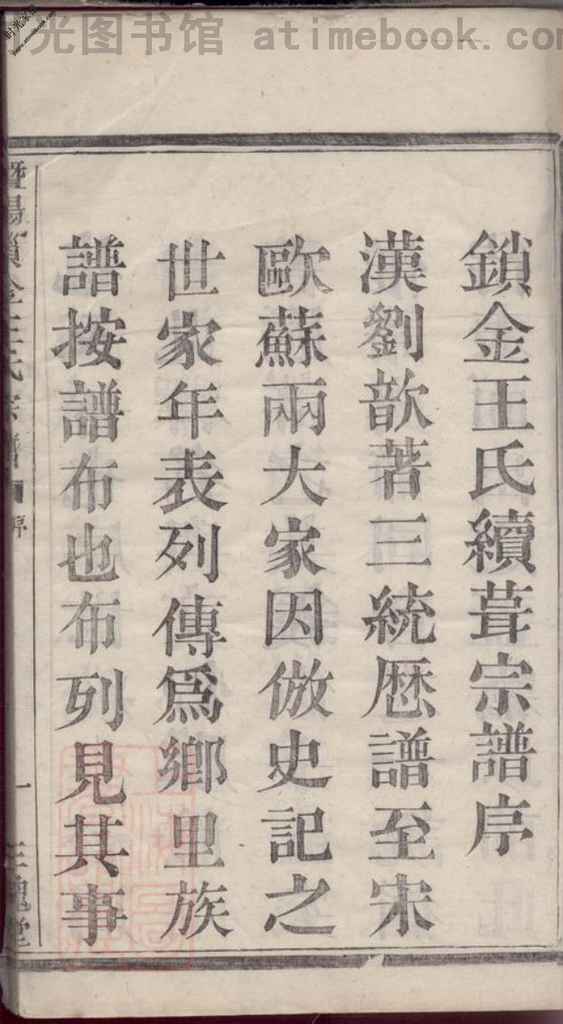 光图书馆 atimebook.com
鎖金王氏續葺宗譜序
漢劉歆著三統厯譜至宋
歐蘇兩大家因倣史記之
世家年表列傳爲鄉里族
譜按譜布也布列見其事
暨陽鎖金王氏宗譜 序 一 三槐堂